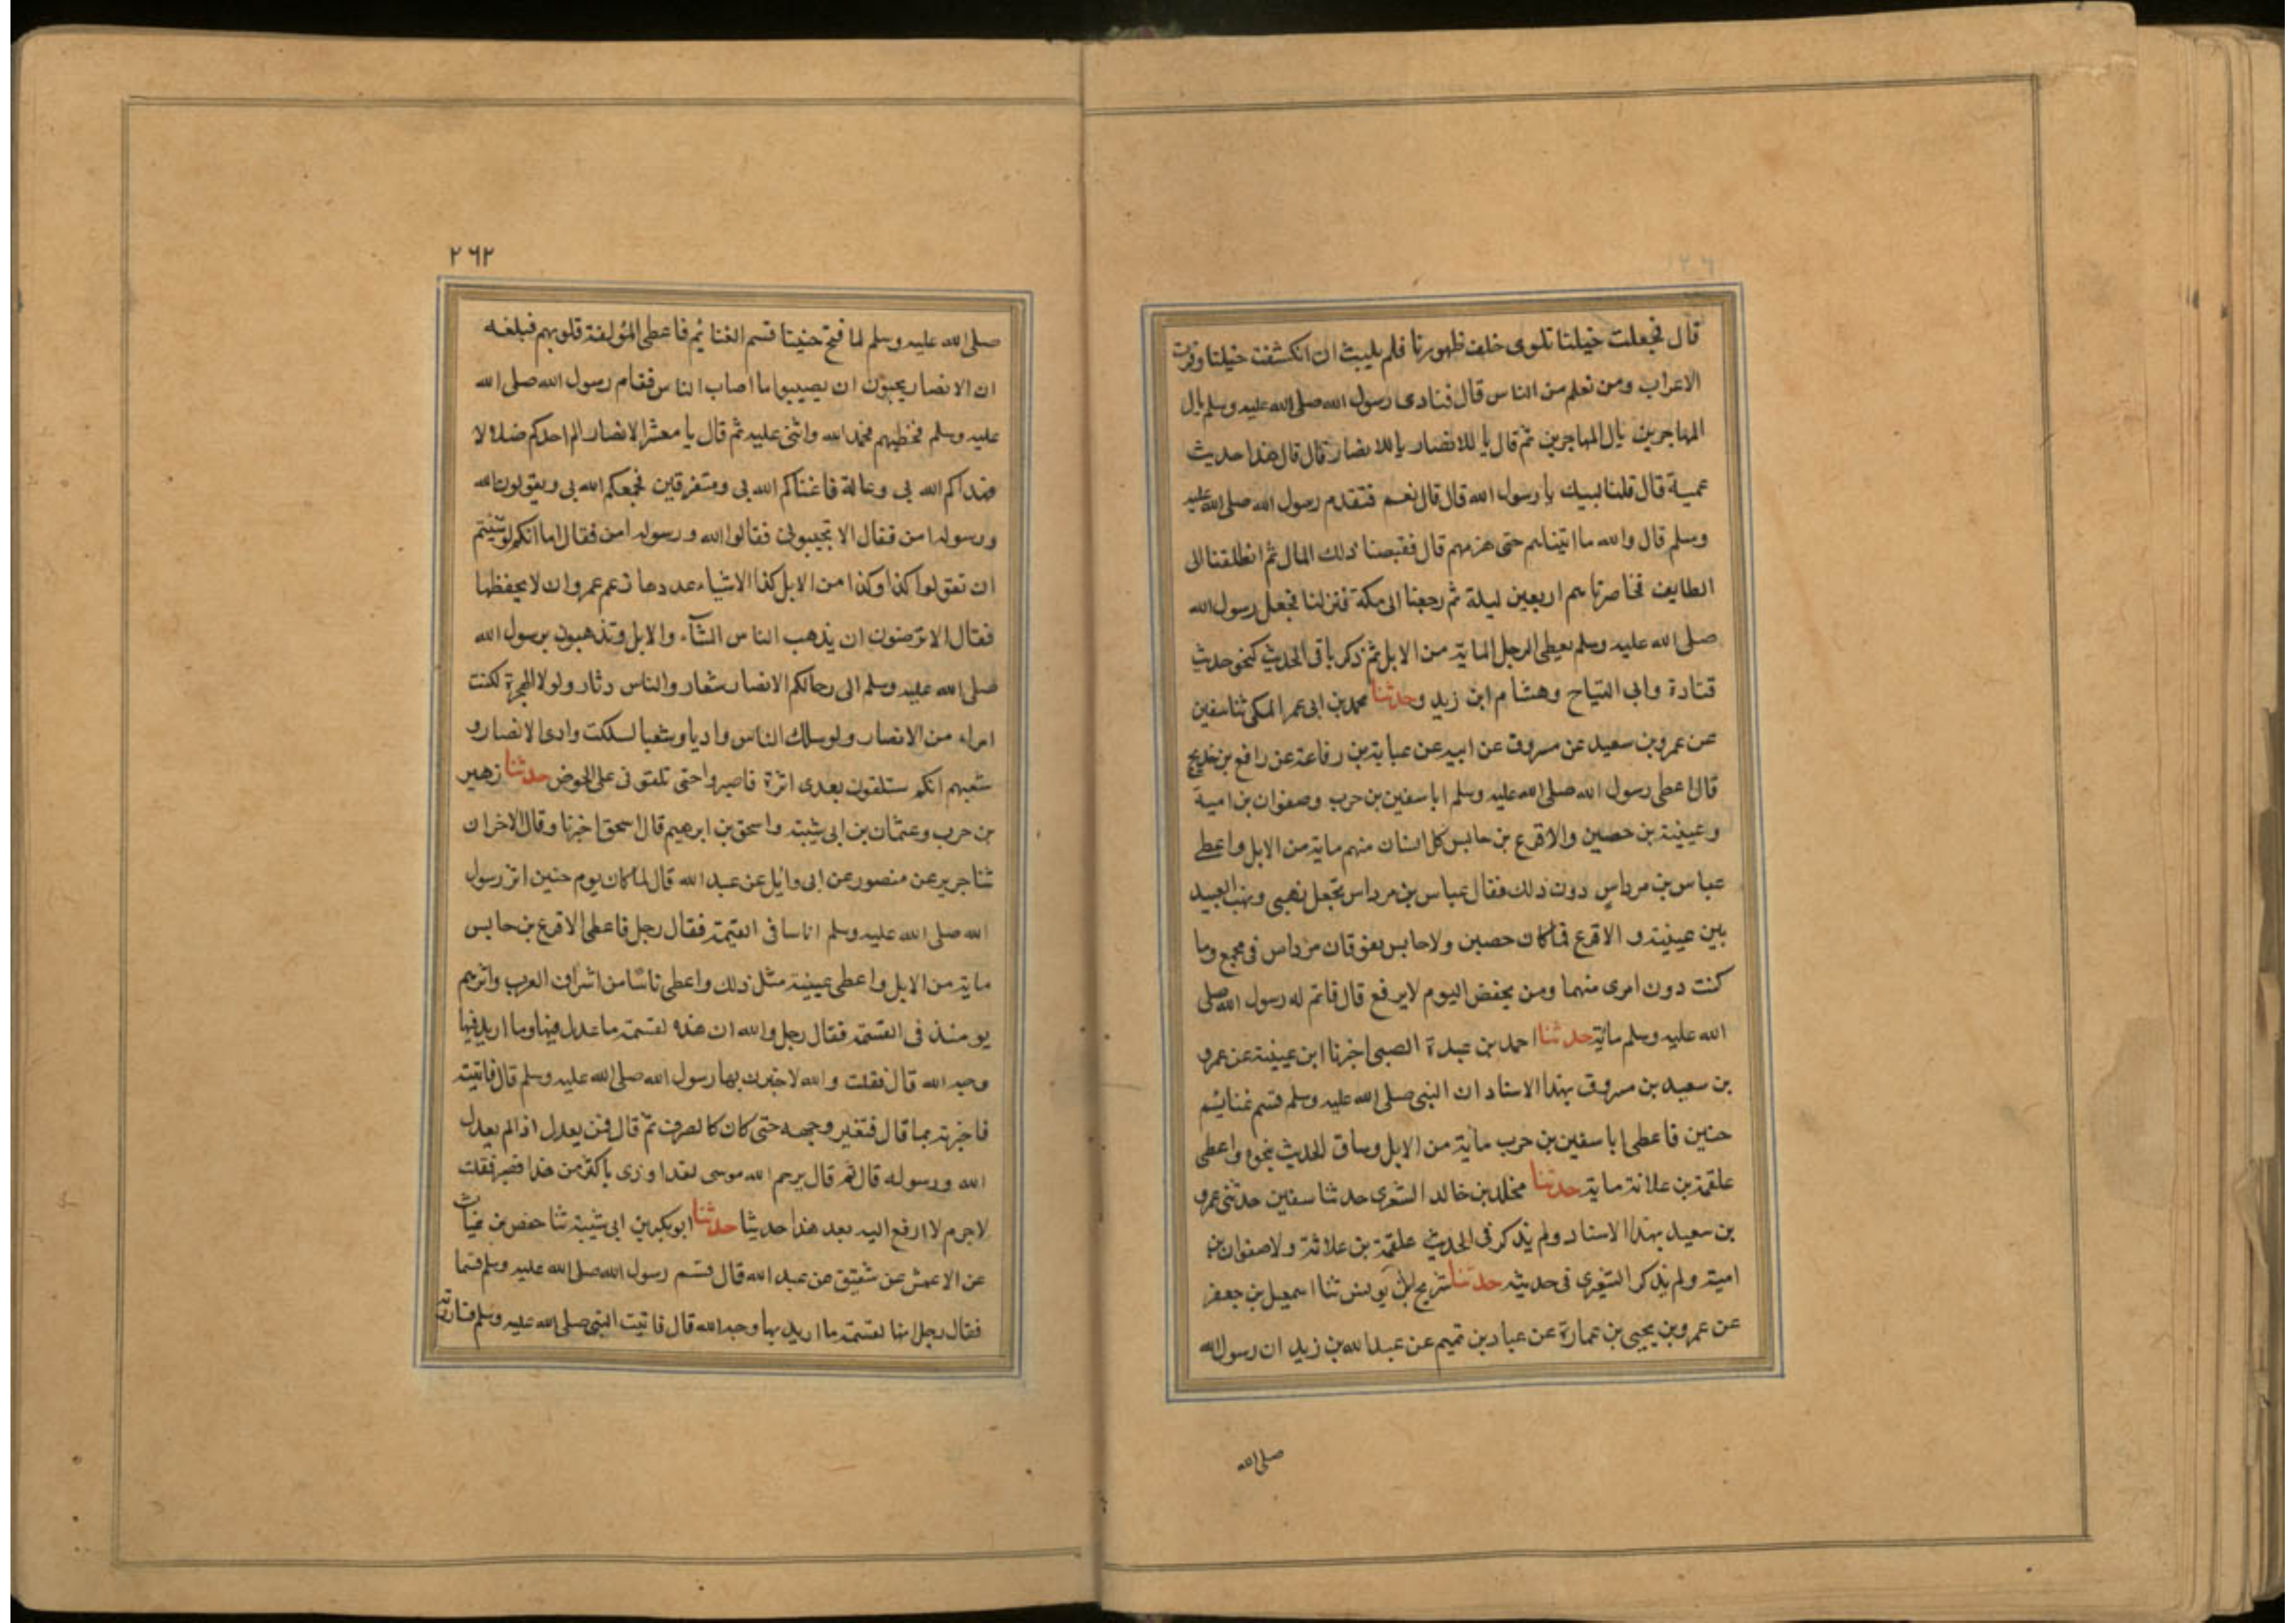 قال فجعلت خيلنا تلوى خلف ظهورنا فلم يلبث ان انكشفت خيلنا وفرت
الاعراب ومن نعلم من الناس قال فنادى رسول الله صلى الله عليه وسلم يال
المهاجرين يال المهاجرين ثم قال يا للانصار يا للانصار قال قال هذا حديث
عمية قال قلنا لبيك يا رسول الله قال قال نعم فتقدم رسول الله صلى الله عليه
وسلم قال والله ما اتيناهم حتى هزمهم قال فقبضنا ذلك المال ثم انطلقنا الى
الطايف فحاصرناهم اربعين ليلة ثم رجعنا الى مكة فنزلنا فجعل رسول الله
صلى الله عليه وسلم يعطى الرجل الماية من الابل ثم ذكر باقى الحديث كنحو حديث
قتادة وابى التياح وهشام ابن زيد وحدثنا محمد بن ابى عمر المكى ثنا سفين
عن عمرو بن سعيد عن مسروق عن ابيه عن عباية بن رفاعة عن رافع بن خديج
قال اعطى رسول الله صلى الله عليه وسلم ابا سفين بن حرب وصفوان بن امية
وعيينة بن حصين والاقرع بن حابس كل انسان منهم ماية من الابل واعطى
عباس بن مرداس دون ذلك فقال عباس بن مرداس تجعل نهبى ونهب العبيد
بين عيينة والاقرع فما كان حصين ولا حابس يفوقان مرداس فى مجمع وما
كنت دون امرى منهما ومن يخفض اليوم لا يرفع قال فاتم له رسول الله صلى
الله عليه وسلم ماية حدثنا احمد بن عبدة الضبى اخبرنا ابن عيينة عن عمرو
بن سعيد بن مسروق بهذا الاسناد ان النبى صلى الله عليه وسلم قسم غنايم
حنين فاعطى ابا سفين بن حرب ماية من الابل وساق الحديث بنحوه واعطى
علقمة بن علاثة ماية حدثنا مخلد بن خالد الشعرى حدثنا سفين حدثنى عمرو
بن سعيد بهذا الاسناد ولم يذكر فى الحديث علقمة بن علاثة ولا صفوان بن
امية ولم يذكر الشعرى فى حديثه حدثنا شريح بن يونس ثنا اسمعيل بن جعفر
عن عمرو بن يحيى بن عمارة عن عباد بن تميم عن عبد الله بن زيد ان رسول الله
صلى الله
٢٦٢
صلى الله عليه وسلم لما فتح حنينا قسم الغنايم فاعطى المؤلفة قلوبهم فبلغه
ان الانصار يحبون ان يصيبوا ما اصاب الناس فقام رسول الله صلى الله
عليه وسلم فخطبهم فحمد الله واثنى عليه ثم قال يا معشر الانصار الم اجدكم ضلالا
فهداكم الله بى وعالة فاغناكم الله بى ومتفرقين فجمعكم الله بى ويقولون الله
ورسوله امن فقال الا تجيبونى فقالوا الله ورسوله امن فقال اما انكم لو شيتم
ان تقولوا كذا وكذا من الابل كذا الاشياء عددها زعم عمرو ان لا يحفظها
فقال الا ترضون ان يذهب الناس الشآء والابل وتذهبون برسول الله
صلى الله عليه وسلم الى رحالكم الانصار شعار والناس دثار ولولا الهجرة لكنت
امراء من الانصار ولو سلك الناس واديا وشعبا لسلكت وادى الانصار و
شعبهم انكم ستلقون بعدى اثرة فاصبروا حتى تلقونى على الحوض حدثنا زهير
بن حرب وعثمان بن ابى شيبة واسحق بن ابرهيم قال اسحق اخبرنا وقال الاخران
ثنا جرير عن منصور عن ابى وايل عن عبد الله قال لما كان يوم حنين اثر رسول
الله صلى الله عليه وسلم اناسا فى القسمة فقال رجل فاعطى الاقرع بن حابس
ماية من الابل واعطى عيينة مثل ذلك واعطى ناسا من اشراف العرب واثرهم
يومئذ فى القسمة فقال رجل والله ان هذه لقسمة ما عدل فيها وما اريد فيها
وجه الله قال فقلت والله لاخبرن بها رسول الله صلى الله عليه وسلم قال فاتيته
فاخبرته بما قال فتغير وجهه حتى كان كالصرف ثم قال فمن يعدل اذا لم يعدل
الله ورسوله قال ثم قال يرحم الله موسى لقد اوذى باكثر من هذا فصبر فقلت
لا جرم لا ارفع اليه بعد هذا حديثا حدثنا ابو بكر بن ابى شيبة ثنا حفص بن غياث
عن الاعمش عن شقيق عن عبد الله قال قسم رسول الله صلى الله عليه وسلم قسما
فقال رجل انها لقسمة ما اريد بها وجه الله قال فاتيت النبى صلى الله عليه وسلم فساررته